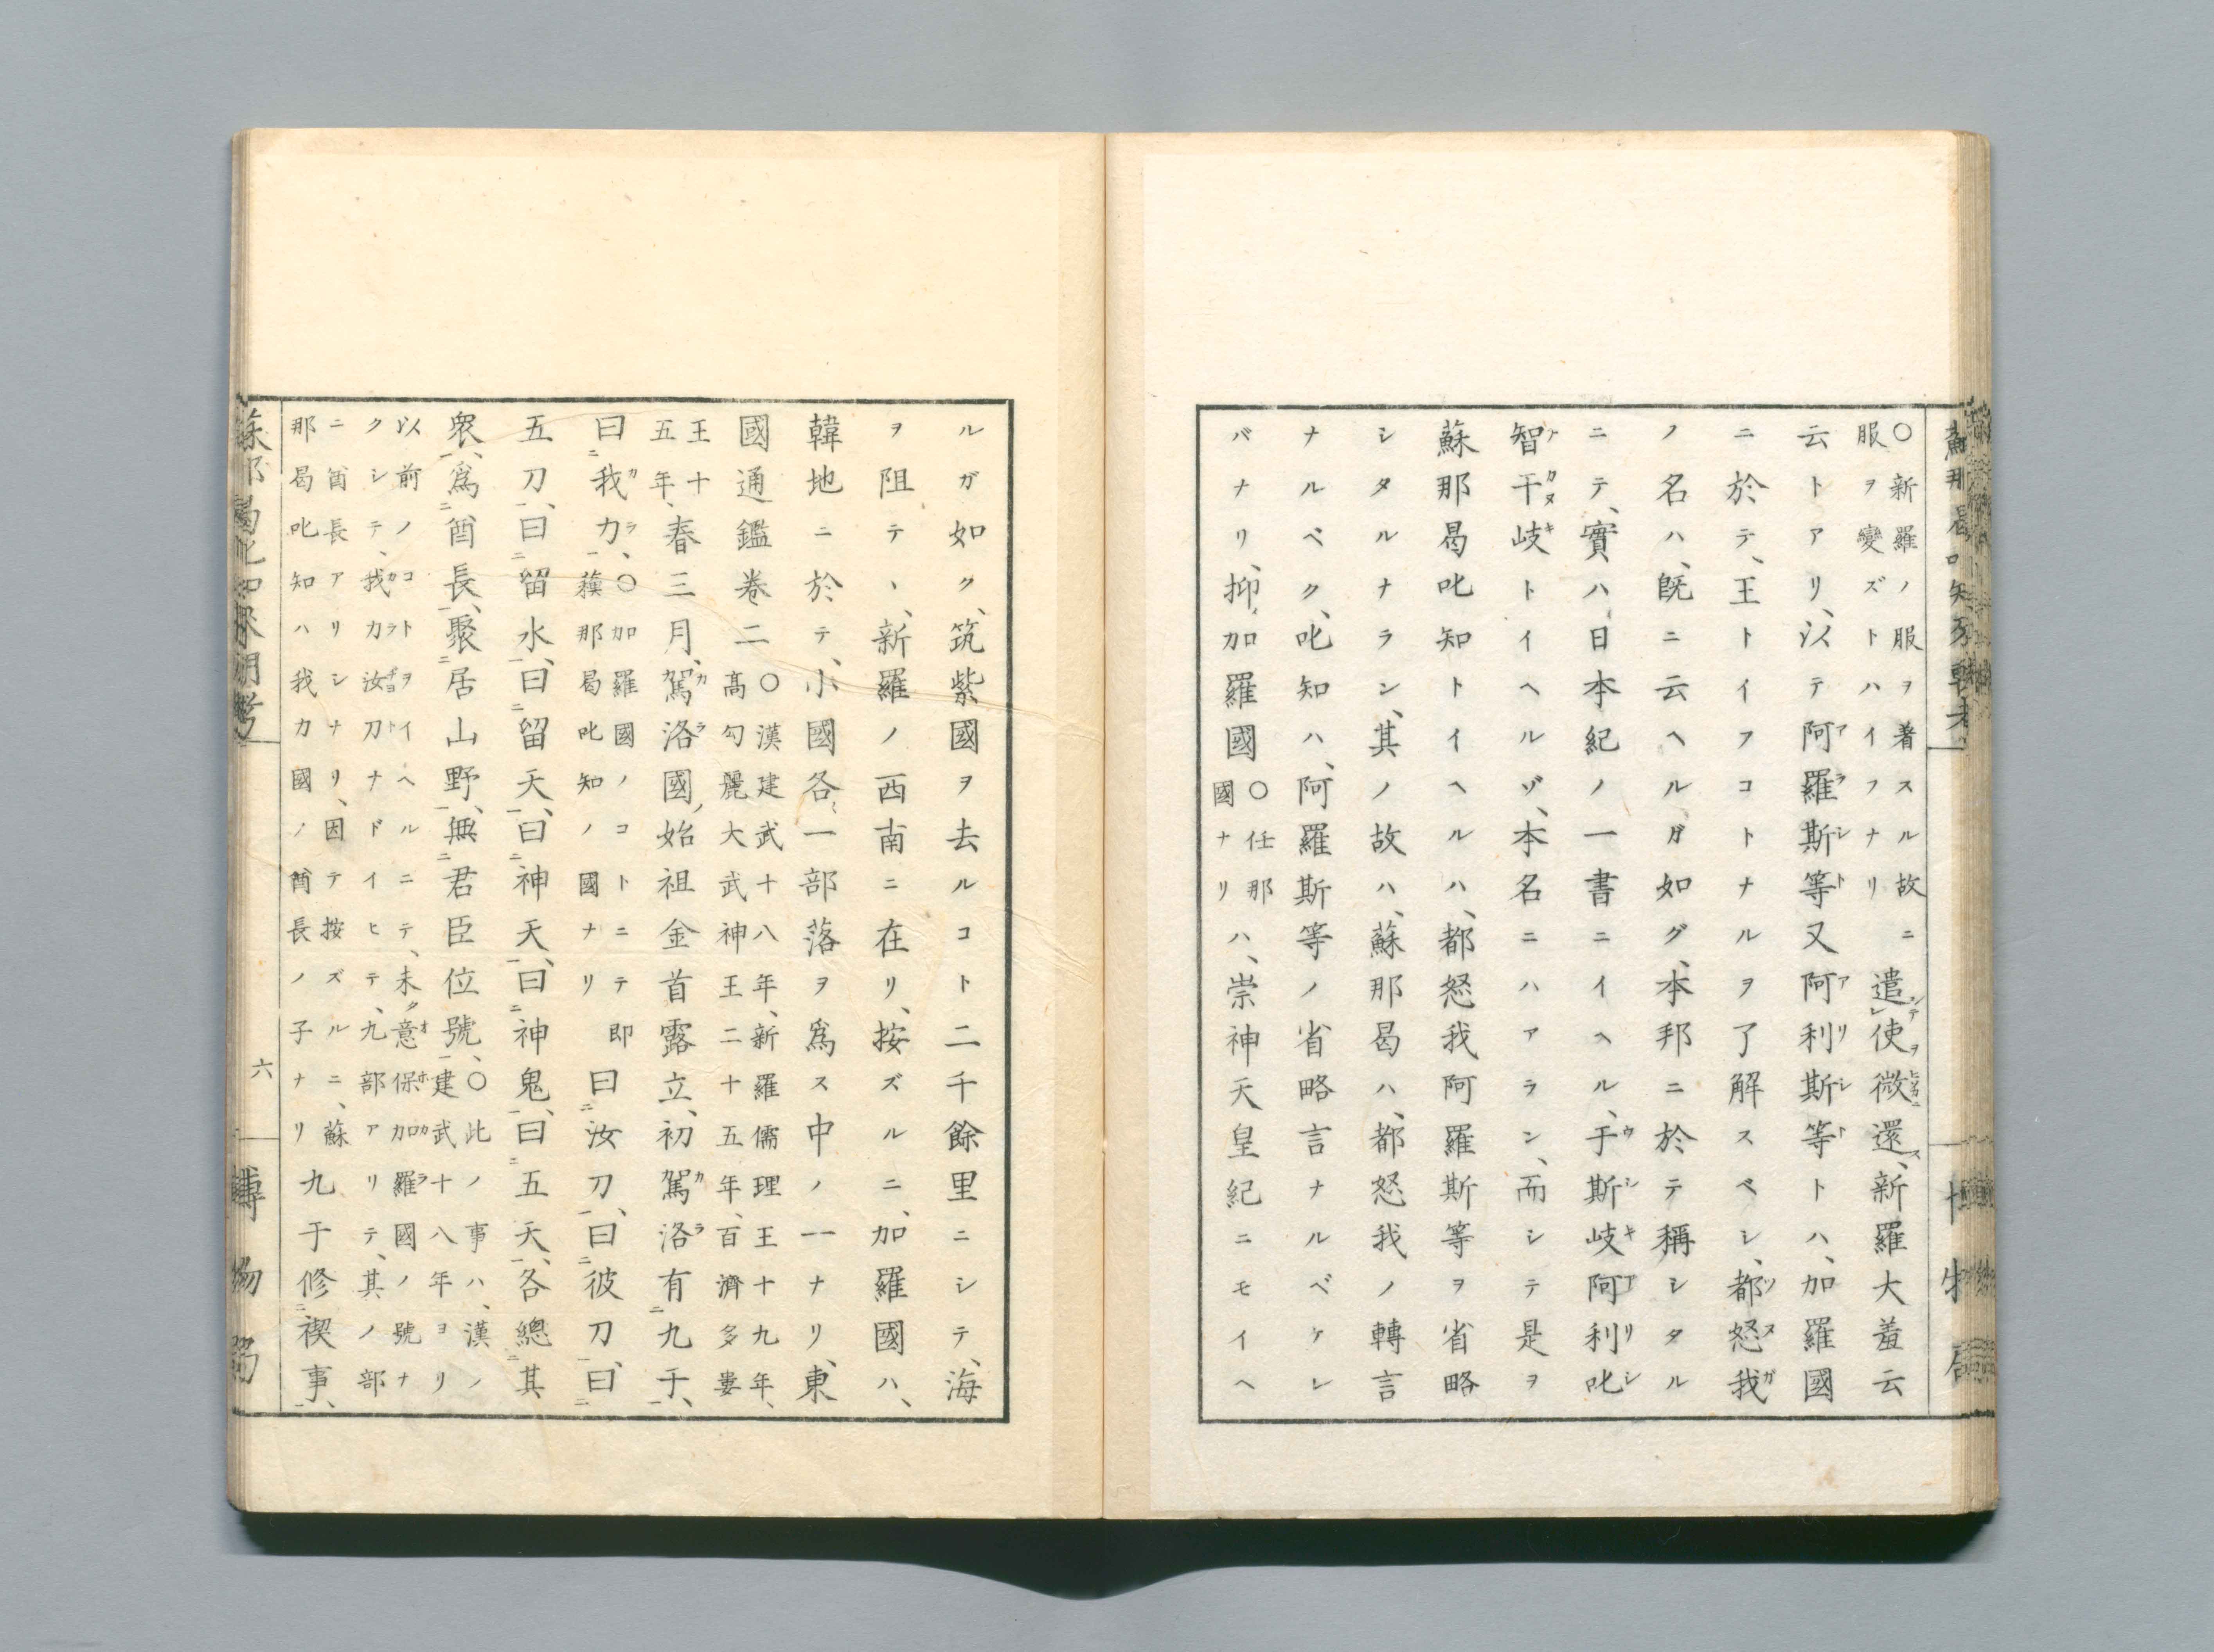 ○新羅ノ服ヲ著スル故ニ
服ヲ變ズトハイフナリ
遣使微還、新羅大羞云
云トアリ、以テ阿羅斯等又阿利斯等トハ、加羅國
ニ於テ、王トイフコトナルヲ了解スベシ、都怒我
ノ名ハ、既ニ云ヘルガ如グ、本邦ニ於テ稱シタル
ニテ、實ハ、日本紀ノ一書ニイヘル、于斯岐阿利叱
智干岐トイヘルゾ、本名ニハアラン、而シテ是ヲ
蘇那曷叱知トイヘルハ、都怒我阿羅斯等ヲ省略
シタルナラン、其ノ故ハ、蘇那曷ハ、都怒我ノ轉言
ナルベク、叱知ハ、阿羅斯等ノ省略言ナルベケレ
バナリ、抑、加羅國
○任那
國ナリ
ハ、崇神天皇紀ニモイヘ
ルガ如ク、筑紫國ヲ去ルコト二千餘里ニシテ、海
ヲ阻テヽ、新羅ノ西南ニ在リ、按ズルニ、加羅國ハ、
韓地ニ於テ、小國各〻一部落ヲ爲ス中ノ一ナリ、東
國通鑑卷二
○漢建武十八年、新羅儒理王十九年、
高勾麗大武神王二十五年、百濟多婁
王十
五年、
春三月、駕洛國ノ始祖金首露立、初駕洛有九干、
曰我力、
○加羅國ノコトニテ即
蘓那曷叱知ノ國ナリ
曰汝刀、曰彼刀、曰
五刀、曰留水、曰留天、曰神天、曰神鬼、曰五天、各總其
衆、爲酋長、聚居山野、無君臣位號、
○此ノ事ハ、漢ノ
建武十八年ヨリ
以前ノコトヲイヘルニテ、未意保加羅國ノ號ナ
クシテ、我力汝刀ナドイヒテ、九部アリテ、其ノ部
ニ酋長アリシナリ、因テ按ズルニ、蘇
那曷叱知ハ我力國ノ酋長ノ子ナリ
九干修禊事、
六